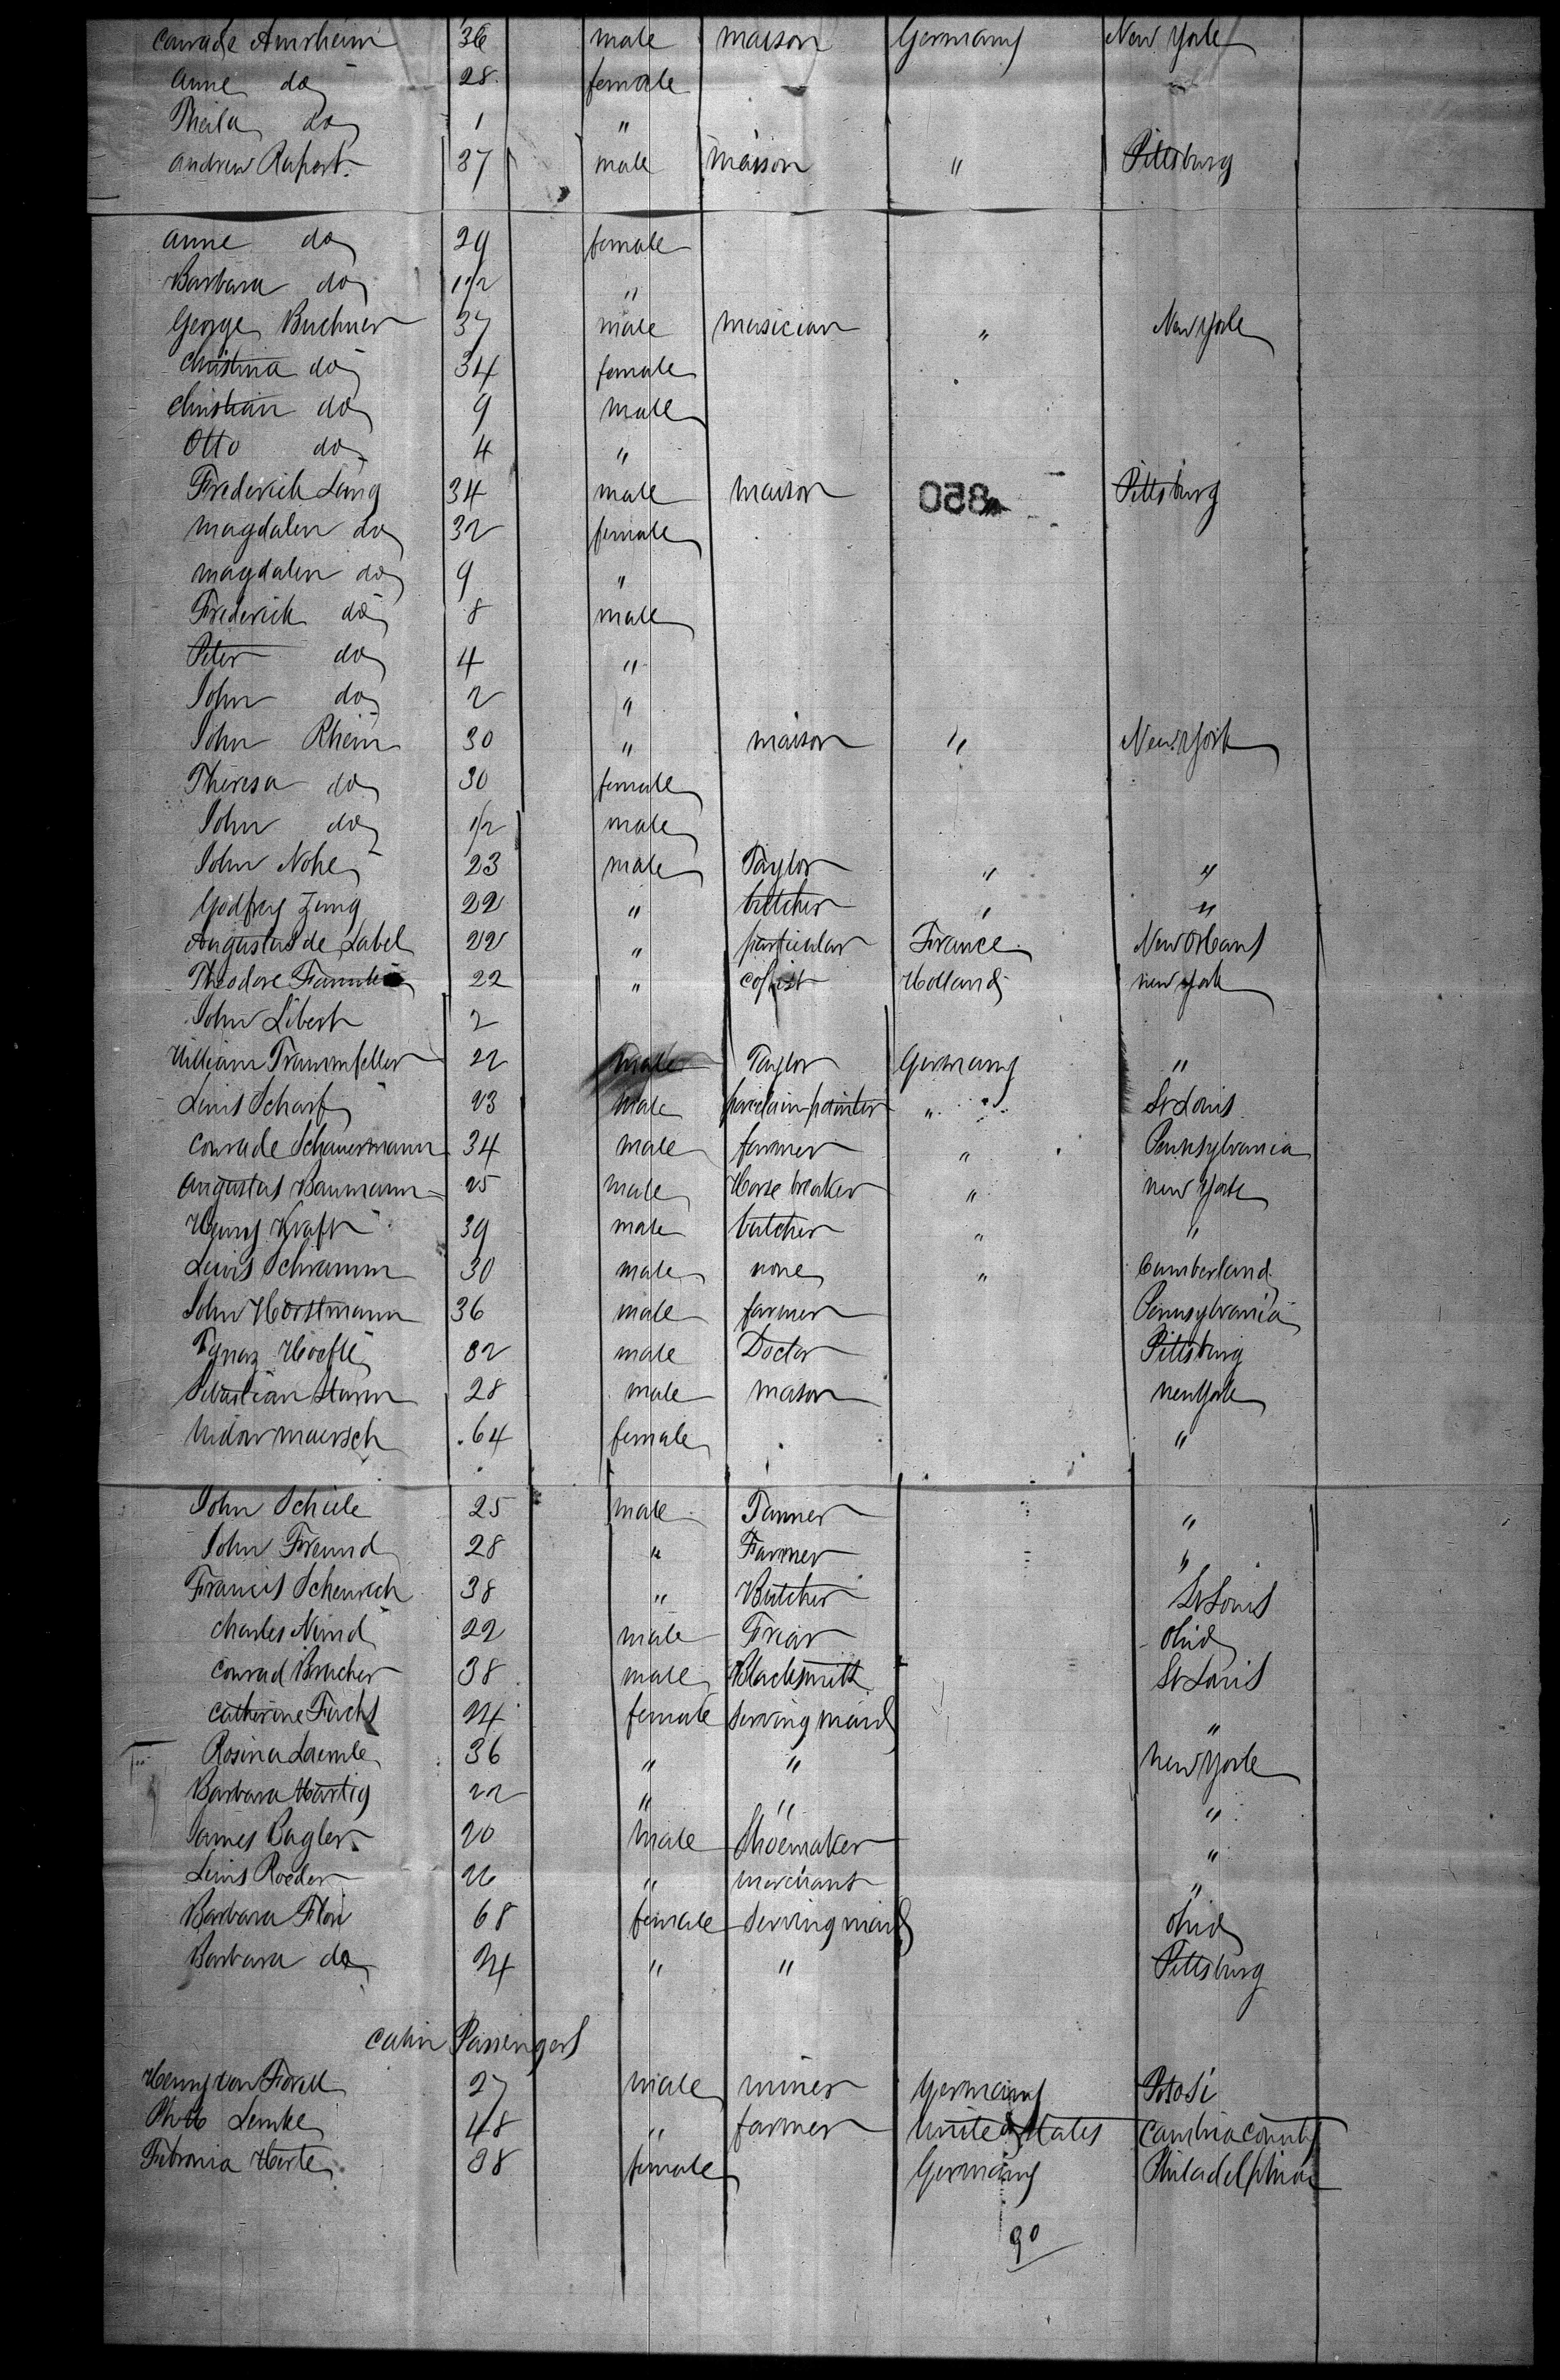 Conrade Amrheim 36 male maison Germany New York
Anne do 28 female
Theila do 1 "
Andrew Rupert. 37 male maison " Pittsburg
Anne do 29 female
Barbara do 1 1/2 "
George Buchner 37 male musician " New York
Christina do 34 female
Christian do 9 male
Otto do 4 "
Frederich Lang 34 male maison Pittsburg
850
Magdalen do 32 female
Magdalen do 9 "
Frederich do 8 male
Peter do 4 "
John do 2 "
John Rhein 30 " maison " New York
Theresa do 30 female
John do 1/2 male
John Nohe 23 male Taylor " "
Godfrey Zung 22 " butcher " "
Augustus de Label 22 " particular France New Orleans
Theodore 22 " copist Holland new York
John Libert 2
William Traumfeller 22 male Taylor Germany "
Lewis Scharf 23 male porcelain-painter " St Louis
Conrade Schauermann 34 male farmer " Pennsylvania
Augustus Baumann 25 male Horse breaker " new York
Henry Kraft 39 male butcher " "
Lewis Schramm 30 male none " Cumberland
John Horstmann 36 male farmer Pennsylvania
Ignaz Hoefle 32 male Doctor Pittsburg
Sebastian Sturm 28 male mason new York
Widow maersch 64 female "
John Schiele 25 male Tanner "
John Freund 28 " Farmer "
Francis Scheurich 38 " Butcher St Louis
Charles Nimd 22 male Friar Ohio
Conrad Brucher 38 male Blacksmith St Louis
Catherine Fuchs 24 female serving maid "
Rosina Laemle 36 " " new York
Barbara Hartig 22 " " "
James Bagler 20 male Shoemaker "
Lewis Roeder 26 " merchant "
Barbara Flori 68 female serving maid Ohio
Barbara do 24 " " Pittsburg
Cabin Passengers
Henry von Forell 27 male miner Germany Potosi
Lemke 48 " farmer United States Cambria county
Febronia Herle 38 female Germany Philadelphia
90